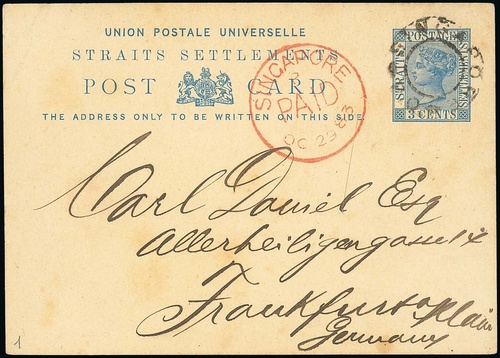 UNION POSTALE UNIVERSELLE
STRAITS SETTLEMENTS
POST CARD
THE ADDRESS ONLY TO BE WRITTEN ON THIS SIDE
SINGAPORE
PAID
OC 29
83
STRAITS
POSTAGE
SETTLEMENTS
3 CENTS
Carl Daniel Esq
Allerheiligengasse 14
Frankfurt a/Main
Germany
1